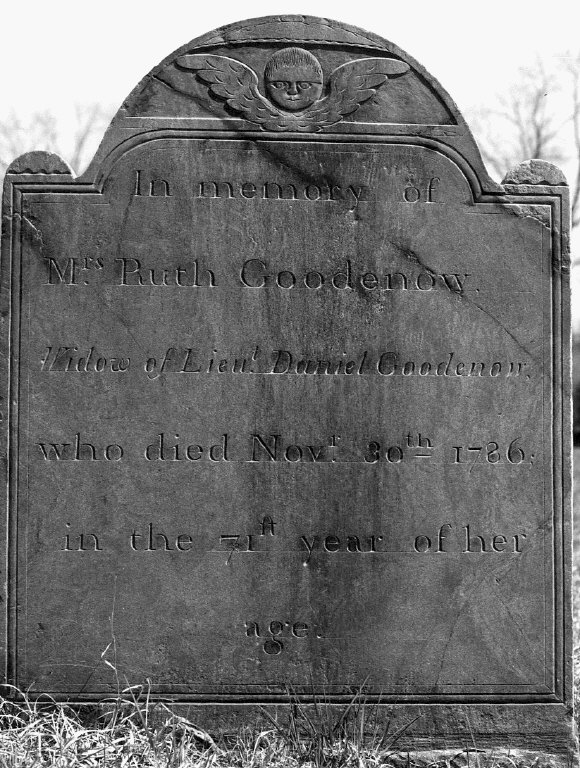 In memory of
Mrs Ruth Goodenow.
Widow of Lieut. Daniel Goodenow,
who died Novr. 30th 1786;
in the 71st year of her
age.